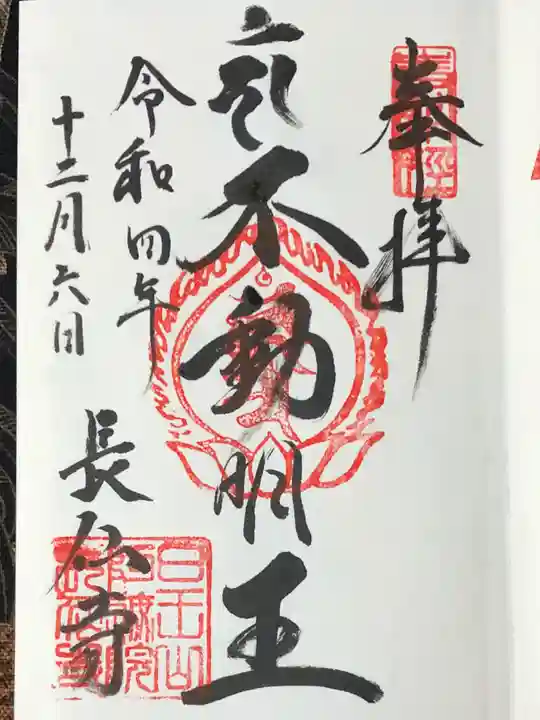 奉拝
不動明王
令和四年
十二月六日
長仏寺